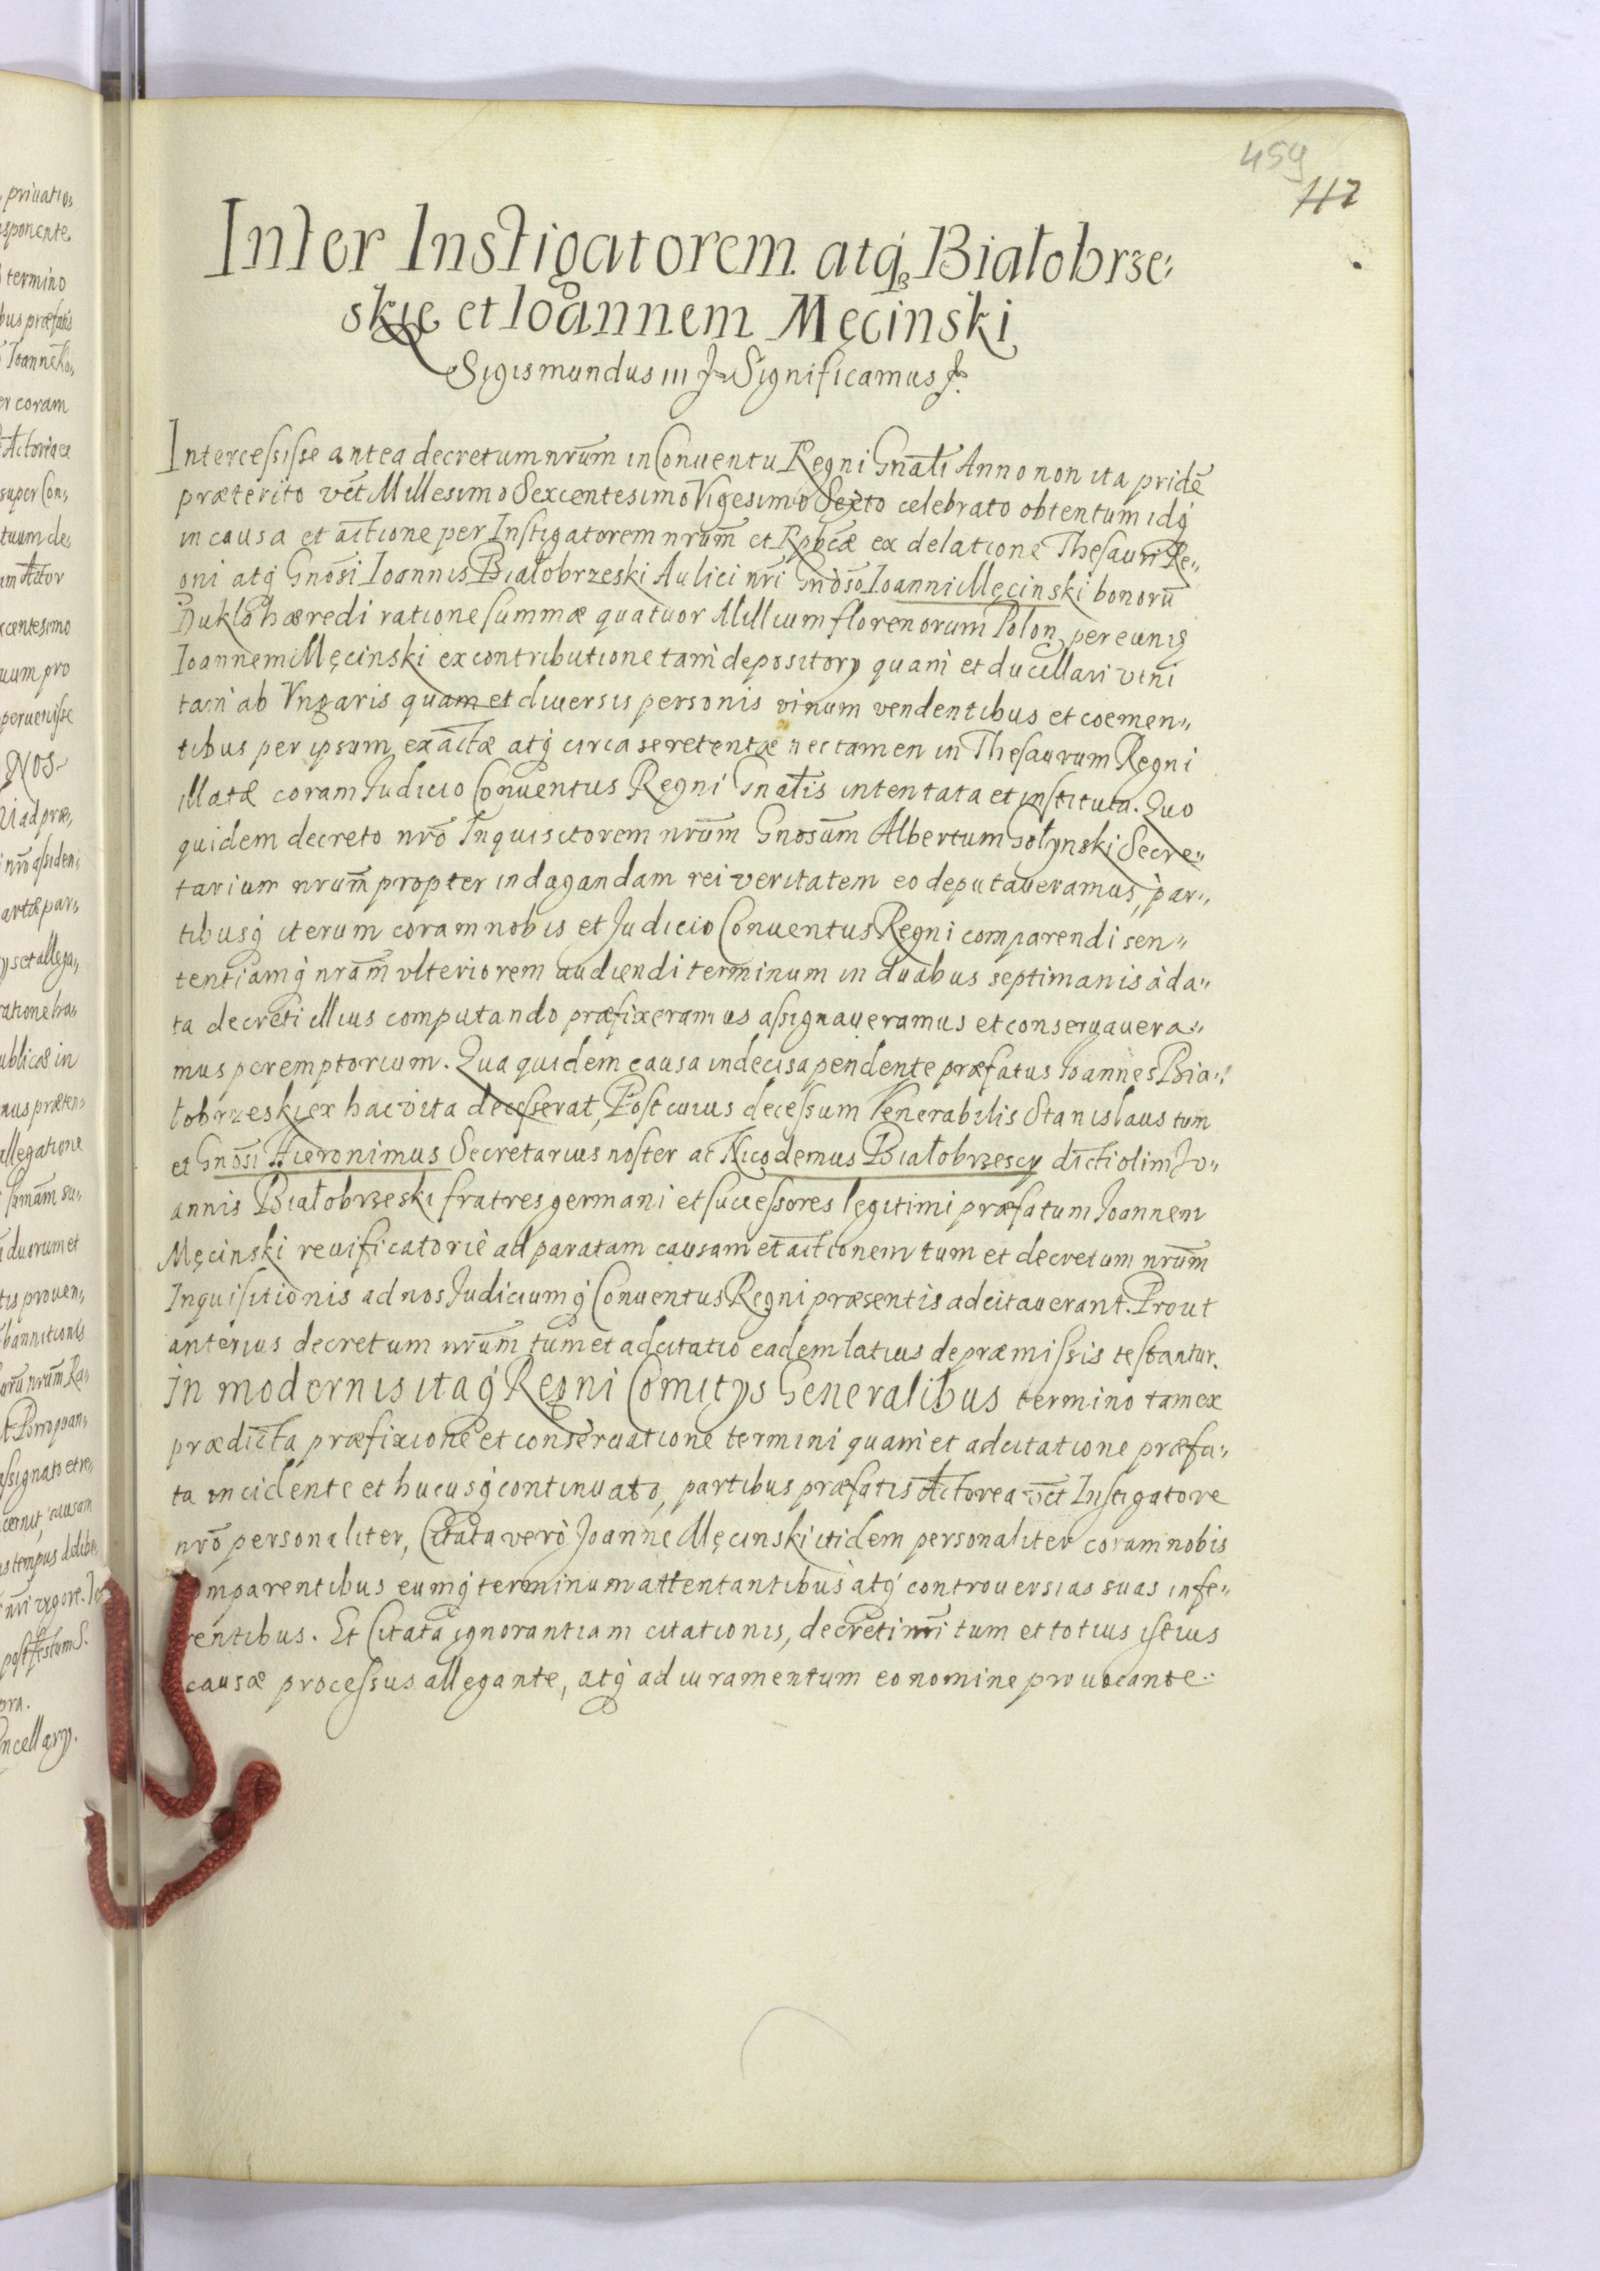 459
117
Inter Instigatorem atq́ꝫ Białobrze,
skie et Ioannem Męcinski
Sigismundus III &c Significamus &c.
Intercessisse antea decretum nrūm in Conuentu Regni Gnāli Anno non ita pridē
præterito vēt Millesimo Sexcentesimo Vigesimo Sexto celebrato obtentum idq́
in causa et actione per Instigatorem nrūm et Rpbcæ ex delatione Thesauri Re„
gni atq́ Gnōsi Ioannis Białobrzeski Aulici nrī Gnōso Ioanni Męcinski bonorū
Dukla hæredi ratione summæ quatuor Millium florenorum Polon, per eunq
Ioannem Męcinski ex contributione tam depositorÿ quam et ducillari vini
tam ab Vngaris quam et diuersis personis vinum vendentibus et coemen„
tibus per ipsum exactæ atq́ circa se retentæ nec tamen in Thesaurum Regni
illatæ coram Iudicio Conuentus Regni Gnālis intentata et instituta. Quo
quidem decreto nrō Inquisitorem nrūm Gnosūm Albertum Gołynski Secre„
tarium nrūm propter indagandam rei veritatem eo deputaueramus, par„
tibusq́ iterum coram nobis et Iudicio Conuentus Regni comparendi sen„
tentiamq́ nrām vlteriorem audiendi terminum in duabus septimanis à da„
ta decreti illius computando præfixeramus assignaueramus et conseruauera„
mus peremptorium. Qua quidem causa indecisa pendente præfatus Ioannes Bia„
łobrzeski ex hac vita decesserat, Post cuius decessum Venerabilis Stanislaus tum
et Gnōsi Hieronimus Secretarius noster ac Nicodemus Białobrzescÿ dicti olim Io„
annis Białobrzeski fratres germani et successores legitimi præfatum Ioannem
Męcinski reuificatoriè ad paratam causam et actionem tum et decretum nrūm
Inquisitionis ad nos Iudiciumq́ Conuentus Regni præsentis adcitauerant. Prout
anterius decretum nrūm tum et adcitatio eadem latius de præmissis testantur.
In modernis itaq́ Regni Comitÿs Generalibus termino tam ex
prædicta præfixione et conseruatione termini quam et adcitatione præfa„
ta incidente et hucusq́ continuato, partibus præfatis Actorea vēt Instigatore
nrō personaliter, Citata verò Ioanne Męcinski itidem personaliter coram nobis
omparentibus eumq́ terminum attentantibus atq́ controuersias suas infe„
rentibus. Et Citata ignorantiam citationis, decreti nrī tum et totius istius
causæ processus allegante, atq́ ad iuramentum eo nomine prouocante
priuatio,
sponente,
termino
bus præfatis
er coram
Actorea ex
super Con,
tuum de,
um Actor
xcentesimo
uum pro
peruenisse
Nos
ad præ,
artæ par,
ÿs et allega,
ratione hæ,
ublicæ in
mus præten,
allegatione
sumām su,
duorum et
tis prouen,
bannitionis
assignato et re,
cernit, causam
s tempus delibe,
nrī vigore.
post festum S.
ora.
ncellarÿ.